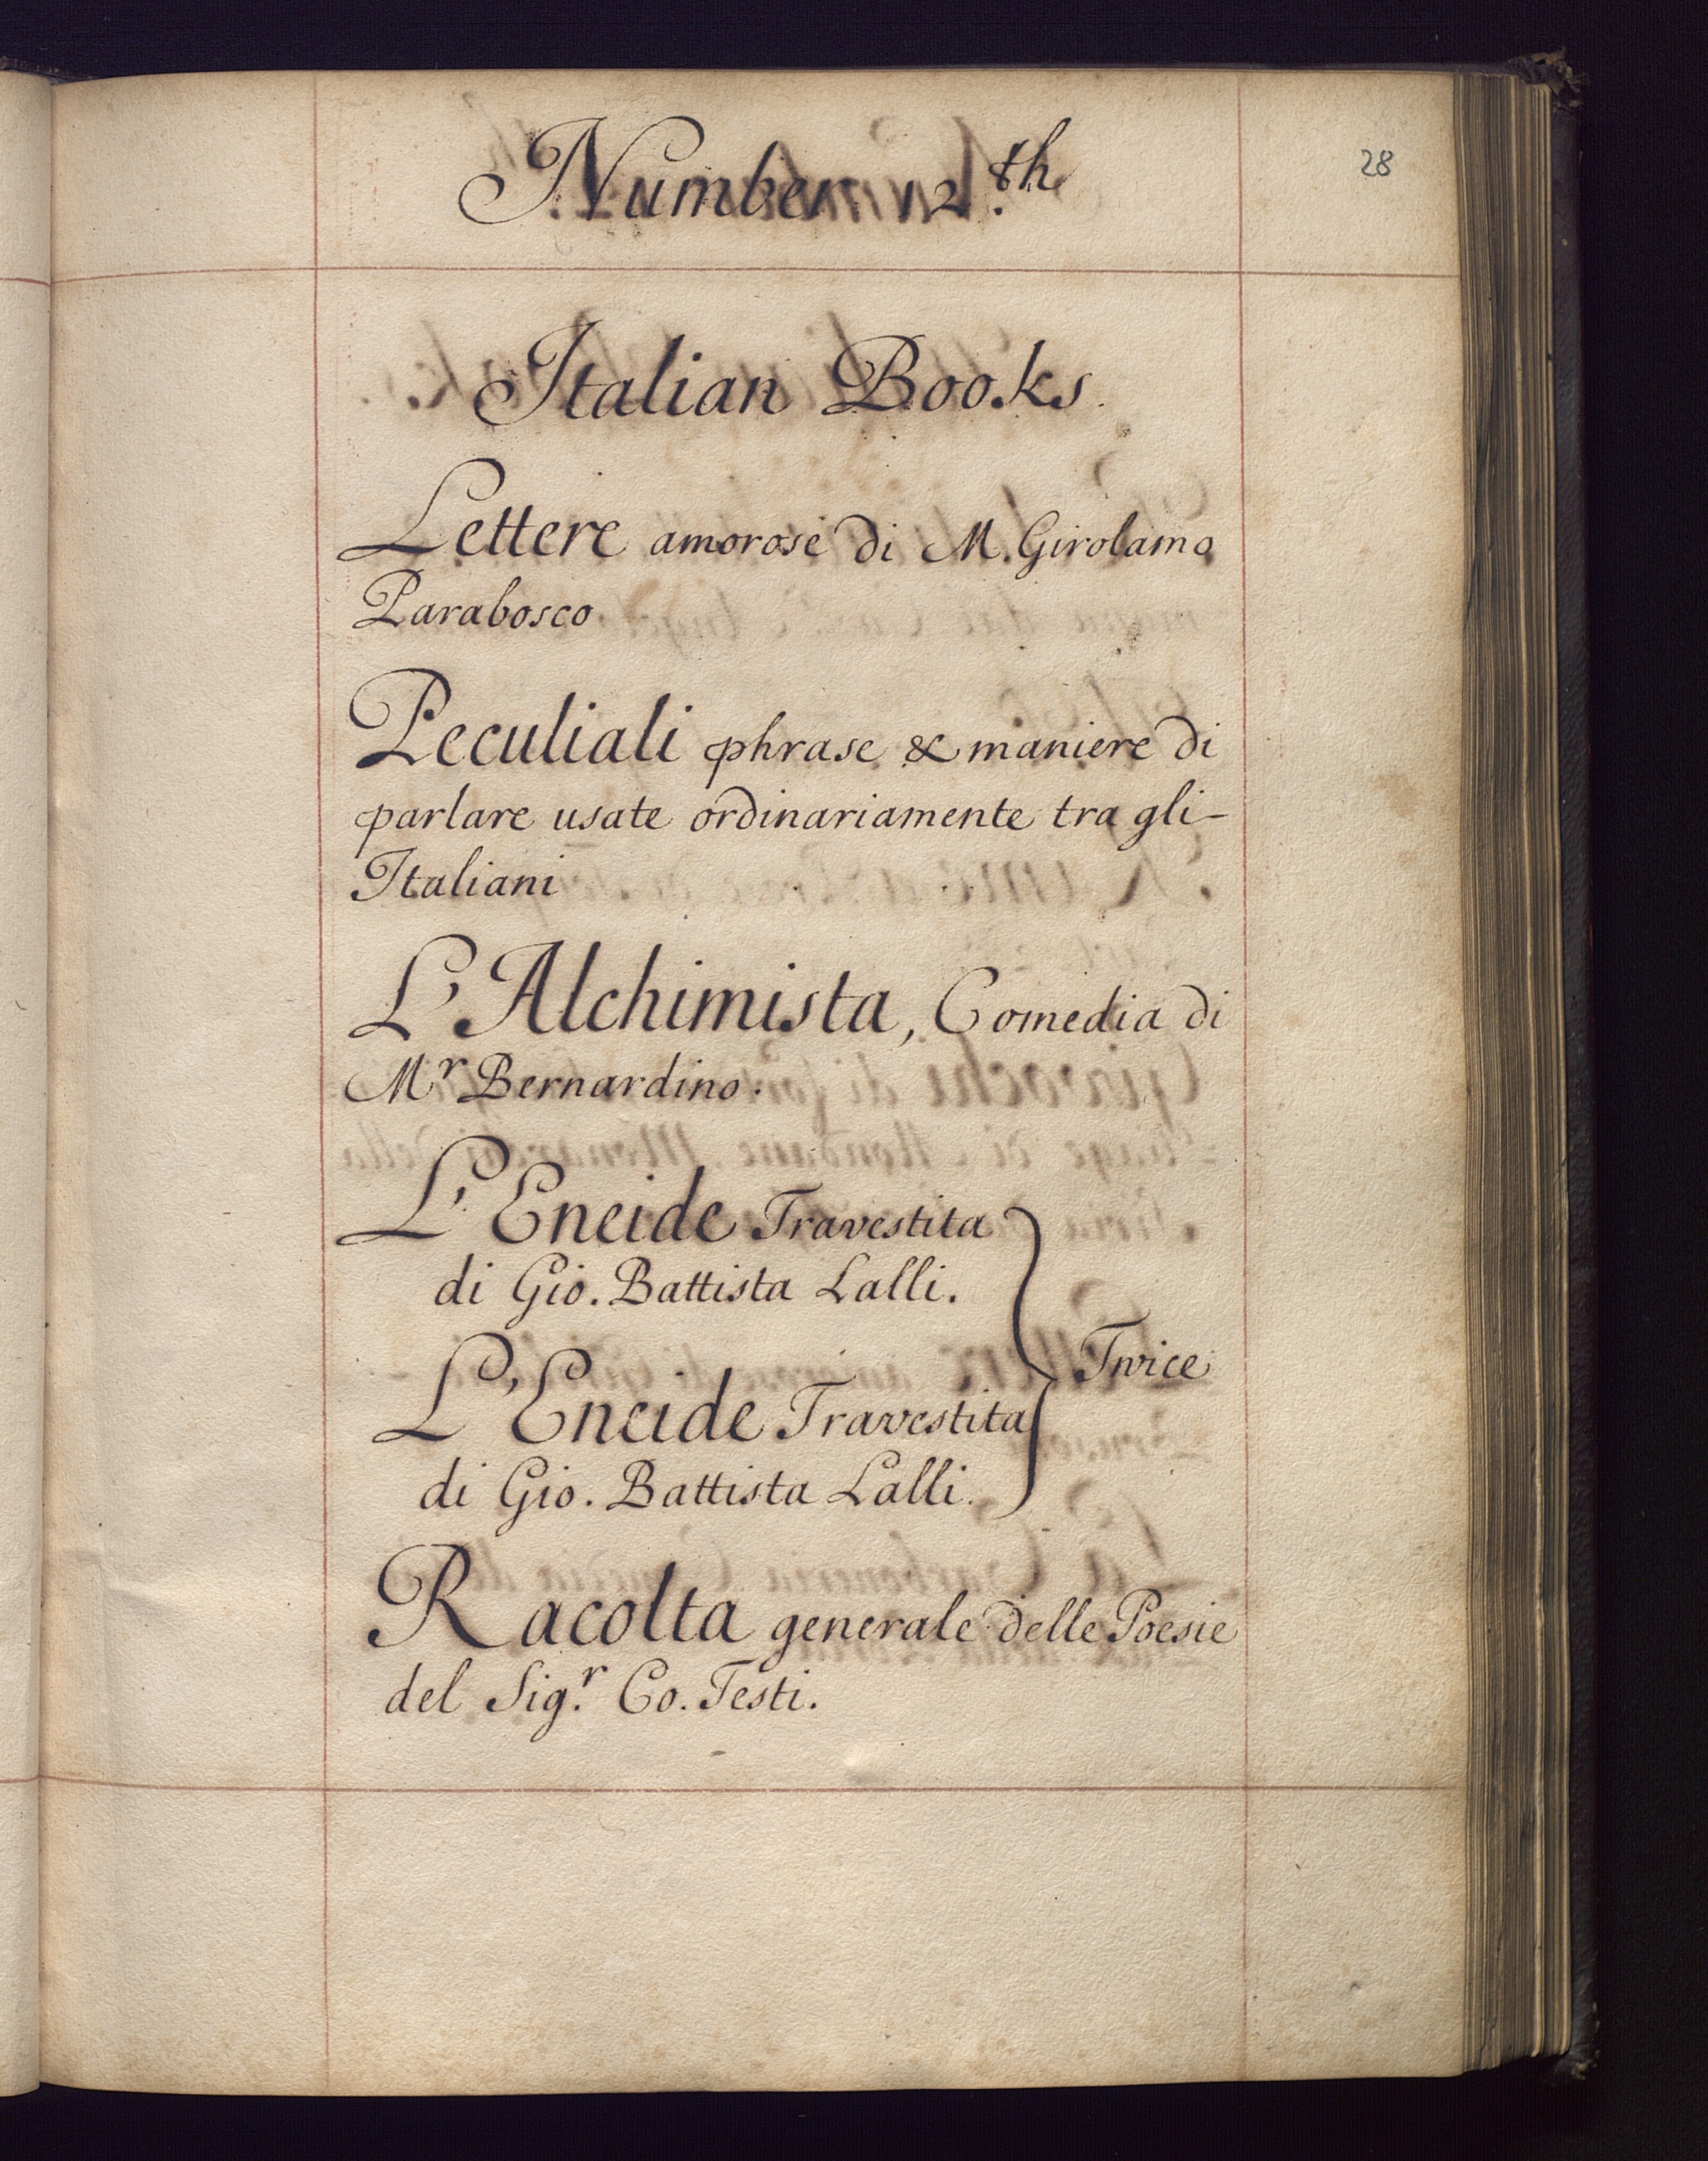 Number 12.th
28
Italian Books.
Lettere amorose di M. Girolamo
Parabosco
Peculiali phrase & maniere di
parlare usate ordinariamente tra gli-
Italiani
L'Alchimista, Comedia di
Mr Bernardino.
L'Eneide Travestita
di Gio. Battista Lalli.
Twice
L'Eneide Travestita
di Gio. Battista Lalli.
Racolta generale delle Poesie
del Sig.r Co. Testi.